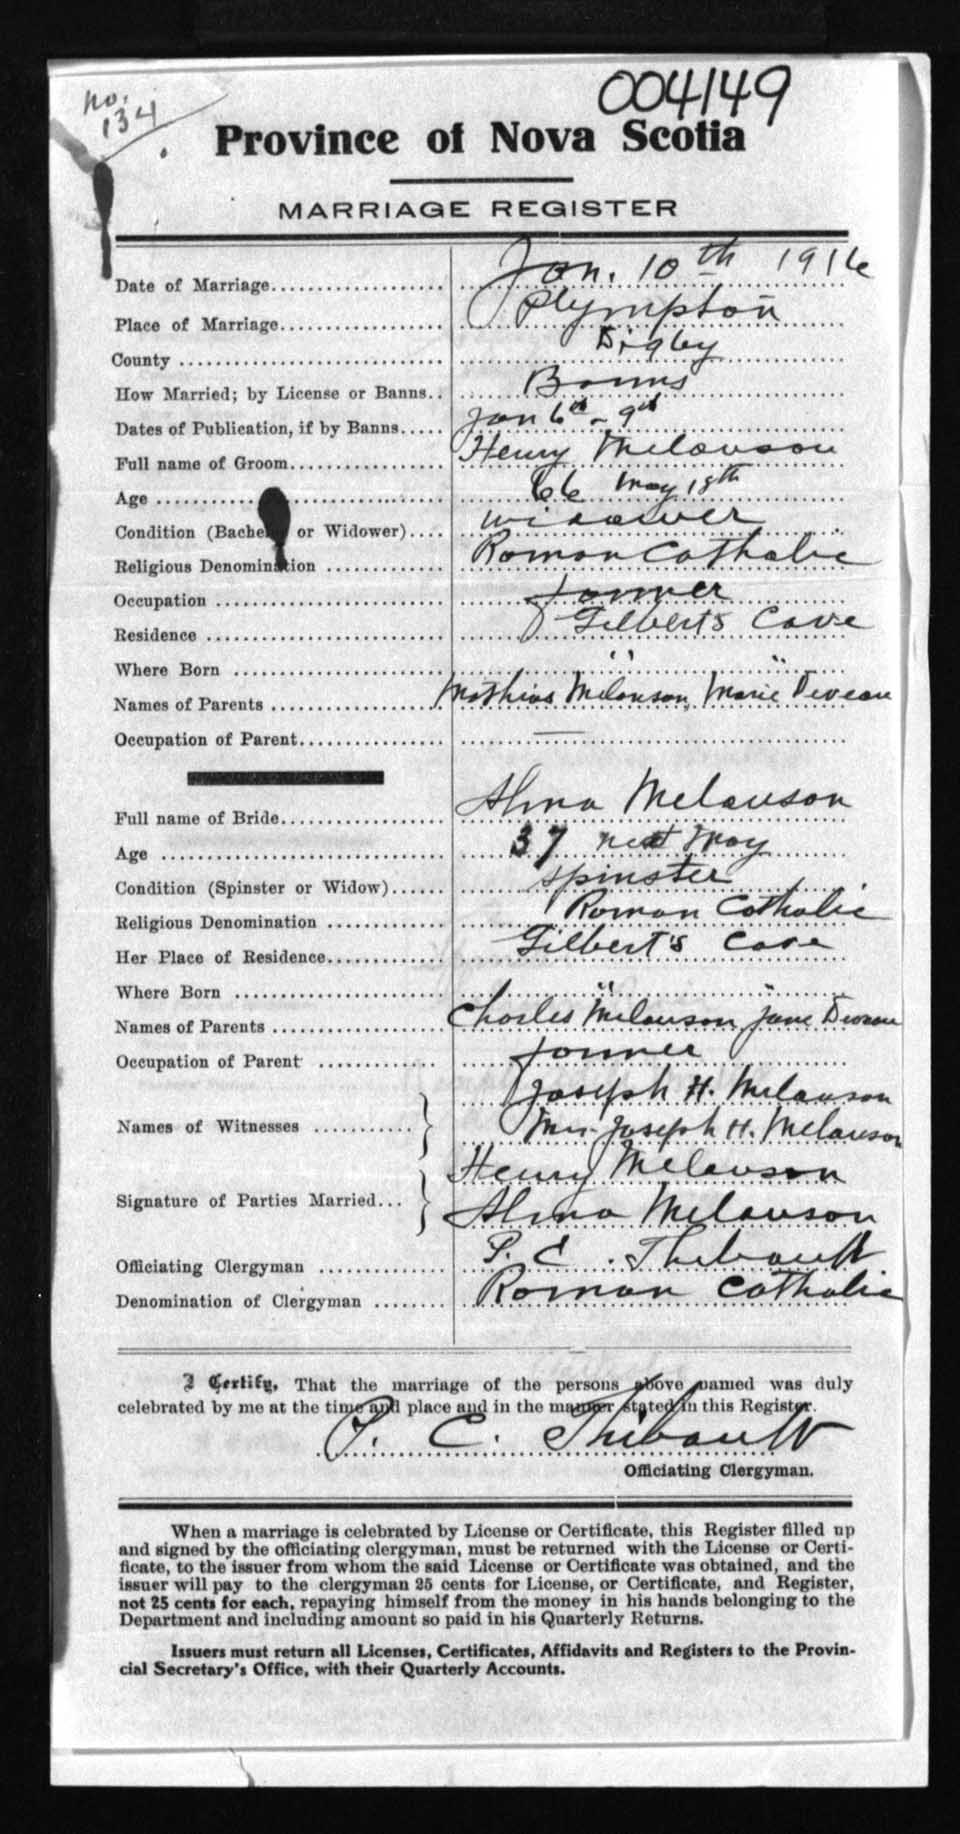 no. 134
004149
Province of Nova Scotia
MARRIAGE REGISTER
Date of Marriage.................... Jan. 10th 1916
Place of Marriage.................. Plympton
County ............................. Digby
How Married; by License or Banns.. Banns
Dates of Publication, if by Banns..... Jan 6th - 9th
Full name of Groom................. Henry Melanson
Age ................................ 66 May 18th
Condition (Bachelor or Widower).... widower
Religious Denomination ............. Roman Catholic
Occupation ......................... farmer
Residence .......................... Gilbert's Cove
Where Born ....................... " "
Names of Parents ................... Mathias Melanson, Marie Deveau
Occupation of Parent................ —
Full name of Bride.................. Alma Melanson
Age ............................... 37 next May
Condition (Spinster or Widow)...... spinster
Religious Denomination ............. Roman Catholic
Her Place of Residence............. Gilbert's Cove
Where Born ....................... " "
Names of Parents ................... Charles Melanson Jane Deveau
Occupation of Parent .............. farmer
Joseph H. Melanson
Names of Witnesses ........... } Mrs. Joseph H. Melanson
Henry Melanson
Signature of Parties Married... } Alma Melanson
Officiating Clergyman .............. P. C. Thibault
Denomination of Clergyman ........ Roman Catholic
I Certify, That the marriage of the persons above named was duly
celebrated by me at the time and place and in the manner stated in this Register.
P. C. Thibault
Officiating Clergyman.
When a marriage is celebrated by License or Certificate, this Register filled up
and signed by the officiating clergyman, must be returned with the License or Certi-
ficate, to the issuer from whom the said License or Certificate was obtained, and the
issuer will pay to the clergyman 25 cents for License, or Certificate, and Register,
not 25 cents for each, repaying himself from the money in his hands belonging to the
Department and including amount so paid in his Quarterly Returns.
Issuers must return all Licenses, Certificates, Affidavits and Registers to the Provin-
cial Secretary's Office, with their Quarterly Accounts.